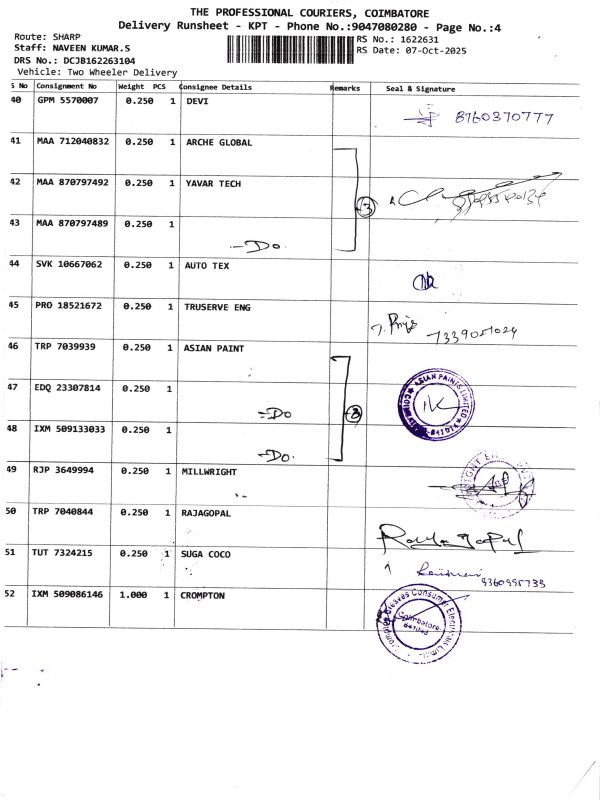 THE PROFESSIONAL COURIERS, COIMBATORE
Delivery Runsheet - KPT - Phone No.:9047080280 - Page No.:4
Route: SHARP
RS No.: 1622631
Staff: NAVEEN KUMAR.S
RS Date: 07-Oct-2025
DRS No.: DCJB162263104
Vehicle: Two Wheeler Delivery
S No Consignment No Weight PCS Consignee Details Remarks Seal & Signature
40 GPM 5570007 0.250 1 DEVI 8760370777
41 MAA 712040832 0.250 1 ARCHE GLOBAL
42 MAA 870797492 0.250 1 YAVAR TECH 3
43 MAA 870797489 0.250 1
-Do.
44 SVK 10667062 0.250 1 AUTO TEX
45 PRO 18521672 0.250 1 TRUSERVE ENG
7339051024
46 TRP 7039939 0.250 1 ASIAN PAINT
ASIAN PAINTS LIMITED
47 EDQ 23307814 0.250 1
-Do 3
48 IXM 509133033 0.250 1
-Do.
49 RJP 3649994 0.250 1 MILLWRIGHT
50 TRP 7040844 0.250 1 RAJAGOPAL
51 TUT 7324215 0.250 1 SUGA COCO
9360995733
52 IXM 509086146 1.000 1 CROMPTON
Crompton Greaves Consumer Electricals Limited
Coimbatore